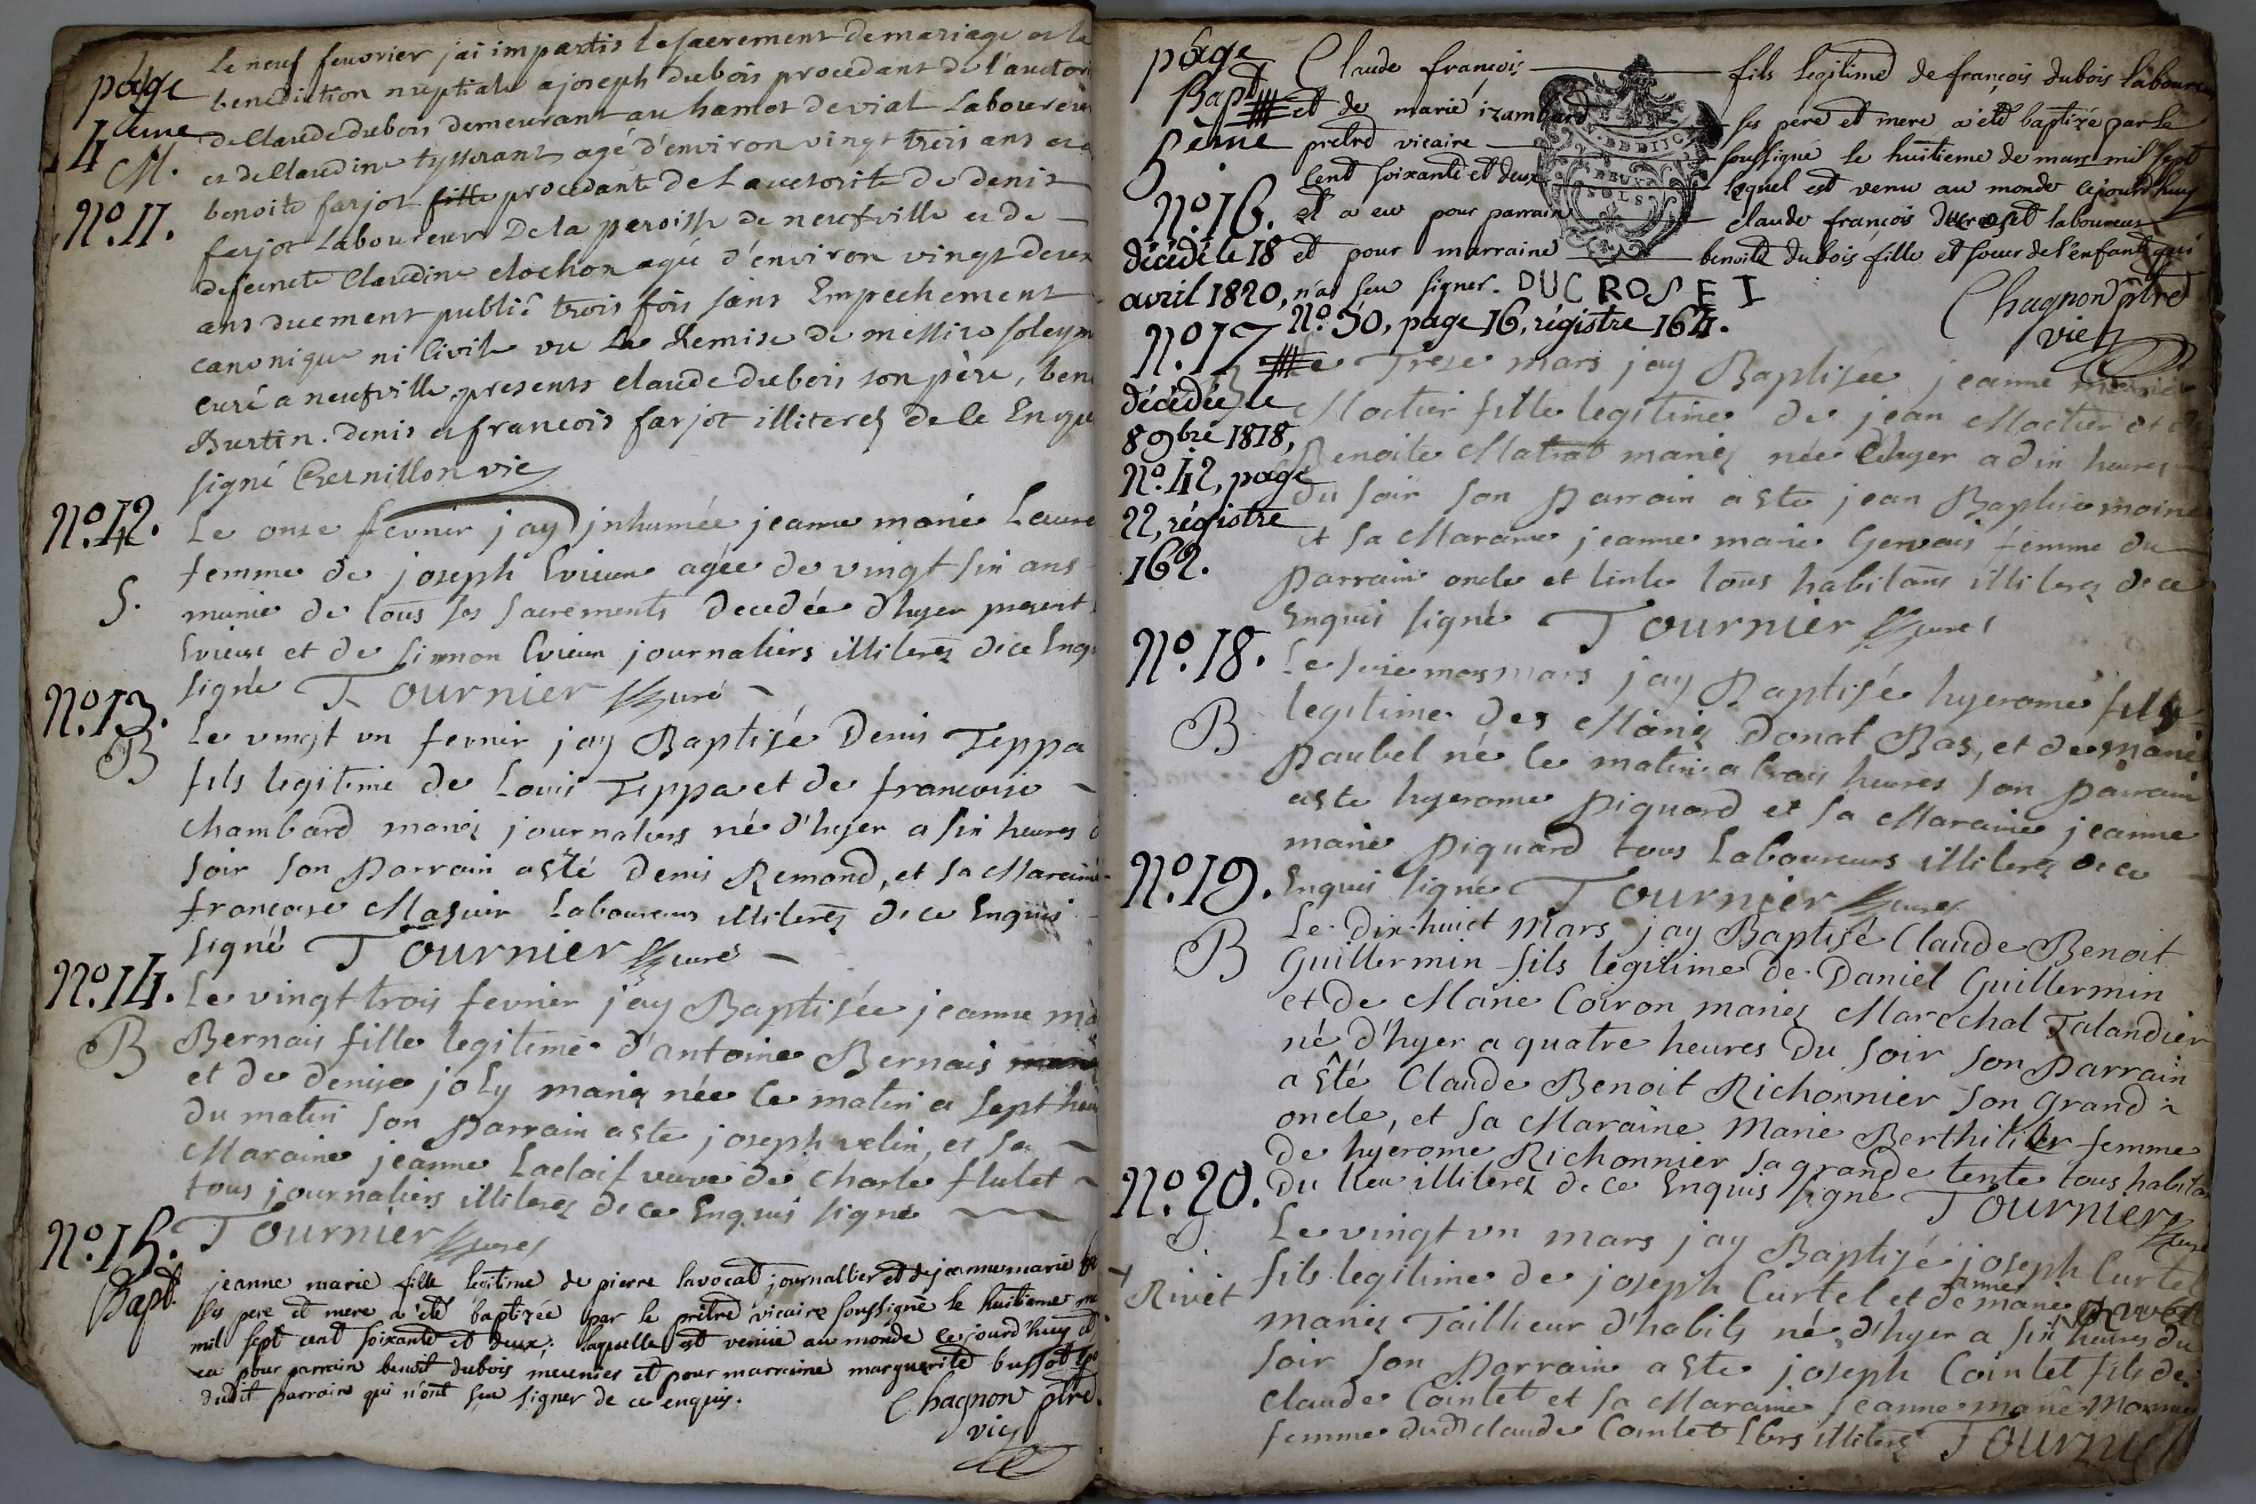 page
4eme
M.
No. 11.
Le neuf feuvrier jai impartis le sacrement de mariage et la
benediction nuptiale a joseph dubois procedant de l'autori
de Claude dubois demeurant au hamot de vial Laboureur
et de Claudine tysserant agé d'environ vingt trois ans et a
benoite farjot fille procedante de Lautorité de denis
farjot Laboureur De la paroisse de neufville et de
defuncte Claudine clochon agée d'environ vingt deux
ans duement publié trois fois sans Empechement
canonique ni Civile vu La Remise de messire soleym
curé a neufville, presents claude dubois son père, ben
Burtin. denis et francois farjot illiterez de le Enqui
signé Chernillon vic
No. 12.
S.
Le onze fevrier jay inhumée jeanne marie Laure
femme de joseph Evieux agée de vingt six ans
munie de tous ses sacrements decedée d'hyer present
Evieux et de simon Evieux journaliers illiterez de ce Enq
signé Tournier curé
No. 13.
B
Le vingt un fevrier jay Baptisé Denis Teppa
fils legitime de Louis Teppa et de francoise
Chambard mariez journaliers né d'hyer a six heures d
soir son Parrain a esté denis Remond, et sa Maraine
francoise Masuir Laboureurs illiterez de ce Enquis
signé Tournier curé
No. 14.
B
Le vingt trois fevrier j'ay Baptisée jeanne ma
Bernais fille legitime d'antoine Bernais
et de denise joly mariez née ce matin a sept heu
du matin son Parrain a esté joseph velin, et sa
Maraine jeanne Laclaif veuve de Charle flulet
tous journaliers illiterez de ce Enquis signé
Tournier curé
No. 15.
Bapt.
jeanne marie fille legitime de pierre lavocat journallier et de jeanne marie
ses pere et mere a été baptizée par le prêtre vicaire soussigné le huitieme m
mil sept cent soixante et deux; laquelle est venüe au monde cejourd'huy et
eu pour parrain benoit dubois meunier et pour marraine marguerite bussot
dudit parrain qui n'ont seu signer de ce enquis.
Chagnon ptre
vic
page
Bapt
5eme
No. 16.
décédé le 18
avril 1820,
No. 50, page 16, régistre 164.
Claude françois fils legitime de françois dubois laboureur
et de marie izambard ses pere et mere a été baptizé par le
prêtre vicaire soussigné le huitieme de mars mil sept
cent soixante et deux lequel est venu au monde cejourd'huy
et a eu pour parrain claude françois ducroset laboureur
et pour marraine benoite dubois fille et soeur de l'enfant qui
n'a seu signer. DUCROSET
Chagnon ptre
vic
No. 17
décédée le
8 9bre 1818,
No. 42, page
22, régistre
162.
Le Treze mars jay Baptisée jeanne marie
Moctier fille legitime de jean Moctier et de
Benoite Matrat mariez née d'hyer a dix heures
du soir son Parrain a esté jean Baptiste moine
et sa Maraine jeanne marie Gervais femme du
Parrain oncle et tente tous habitans illiterez de ce
Enquis signé Tournier curé
No. 18.
B
Le seize mars jay Baptisé hyerome fils
legitime des Mariez Donat Bas, et de Marie
Paubel né ce matin a trois heures son Parrain
a esté hyerome Piquard et sa Maraine jeanne
marie Piquard tous Laboureurs illiterez de ce
Enquis signé Tournier curé
No. 19.
B
Le Dix-huict Mars jay Baptisé Claude Benoit
Guillermin fils legitime de Daniel Guillermin
et de Marie Coiron mariez Marechal Talandier
né d'hyer a quatre heures Du soir son Parrain
a Esté Claude Benoit Richonnier son Grand
oncle, et sa Maraine Marie Berthillier femme
de hyerome Richonnier sa grande tente tous habitan
du lieu illiterez de ce Enquis signé Tournier curé
No. 20.
Rivet
Le vingt un mars jay Baptisé joseph Curtel
fils legitime de joseph Curtel et de marie Rivet
mariez Taillieur d'habits né d'hyer a six heures du
soir son Parrain a esté joseph Cointet fils de
Claude Cointet et sa Maraine jeanne marie
femme dud claude Cointet illiterez Tournier